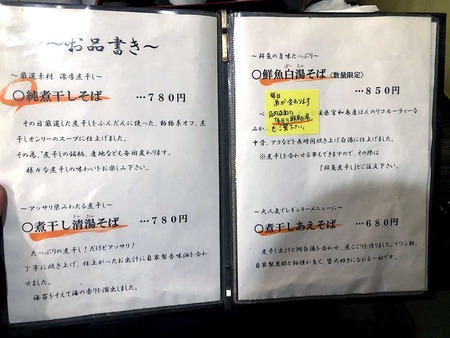 ～お品書き～
～厳選素材 濃厚煮干し～
○純煮干しそば …780円
その日厳選した煮干しをふんだんに使った、動物系オフ、煮
干しオンリーのスープに仕上げました。
その為、煮干しの銘柄、産地なども毎回変わります。
様々な煮干しの味わいをお楽しみ下さい。
～アッサリ染みわたる煮干し～
○煮干し清湯そば …780円
たっぷりの煮干し!だけどアッサリ!
丁寧に炊き上げ、仕上がったお出汁に自家製香味油を合わ
せました。
海苔をそえて海の香りを演出しました。
～鮮魚の旨味たっぷり～
○鮮魚白湯そば(数量限定)
…850円
毎日
魚が変わります
をご覧下さい。
県宇和島産ほんのりフルーティーな
みか
中骨、アラなどを長時間炊き上げ白湯に仕上ました。
※煮干しを合わせる事もできますので、その際は
「鮮魚煮干し」とご注文下さい。
～大人気でレギュラーメニューに～
○煮干しあえそば …680円
煮干し出汁と鯛白湯を合わせ、煮こごりを作りました。イワシ粉、
自家製煮豚と相性が良く、皆大好きになれる一杯です。